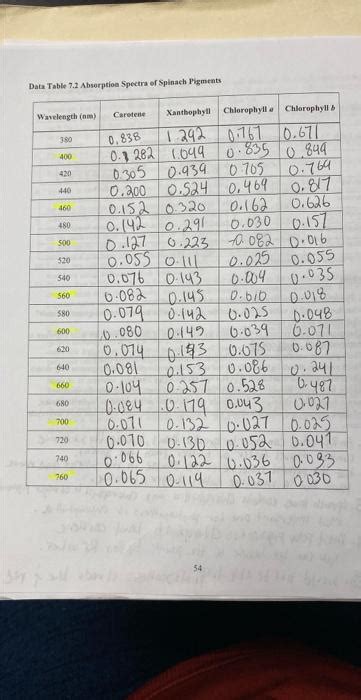 Data Table 7.2 Absorption Spectra of Spinach Pigments
Wavelength (nm) Carotene Xanthophyll Chlorophyll a Chlorophyll b
380 0.838 1.292 0.767 0.671
400 0.282 1.049 0.835 0.849
420 0.305 0.939 0.705 0.764
440 0.200 0.524 0.469 0.817
460 0.152 0.320 0.162 0.626
480 0.142 0.291 0.030 0.157
500 0.127 0.223 0.082 0.016
520 0.055 0.111 0.025 0.055
540 0.076 0.143 0.004 0.035
560 0.082 0.145 0.010 0.018
580 0.079 0.142 0.025 0.048
600 0.080 0.149 0.039 0.071
620 0.074 0.143 0.075 0.087
640 0.081 0.153 0.086 0.241
660 0.104 0.257 0.528 0.487
680 0.084 0.179 0.043 0.027
700 0.071 0.132 0.027 0.025
720 0.070 0.130 0.052 0.041
740 0.066 0.122 0.036 0.033
760 0.065 0.119 0.037 0.030
54